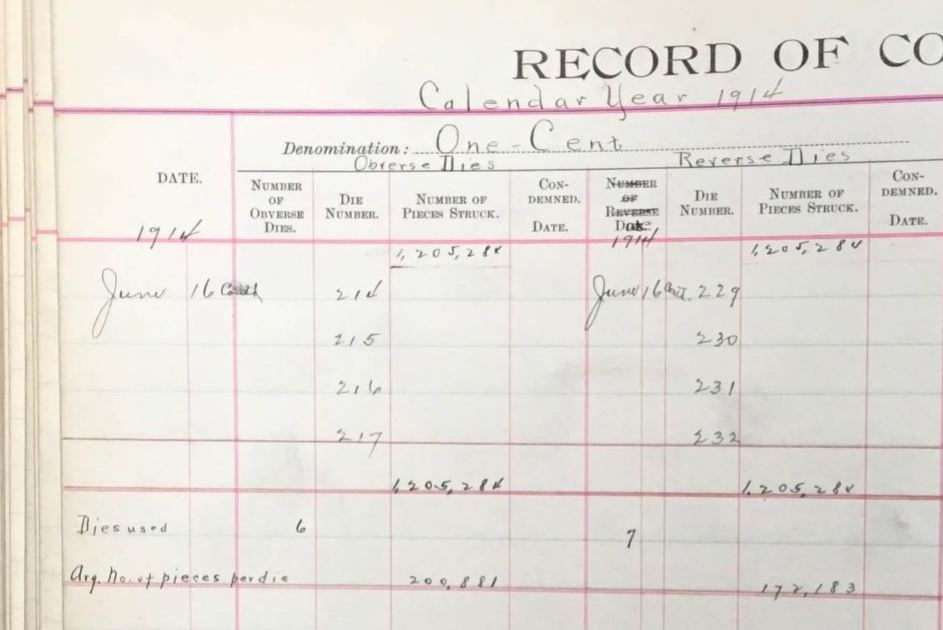 RECORD OF CO
Calendar Year 1914
Denomination: One-Cent
Obverse Dies Reverse Dies
DATE. NUMBER OF OBVERSE DIES. DIE NUMBER. NUMBER OF PIECES STRUCK. CON-DEMNED. DATE. NUMBER OF REVERSE Date DIE NUMBER. NUMBER OF PIECES STRUCK. CON-DEMNED. DATE.
1914 1914
1,205,284 1,205,284
June 16 214 June 16 229
215 230
216 231
217 232
1,205,284 1,205,284
Dies used 6 7
Avg. No. of pieces per die 200,881 172,183